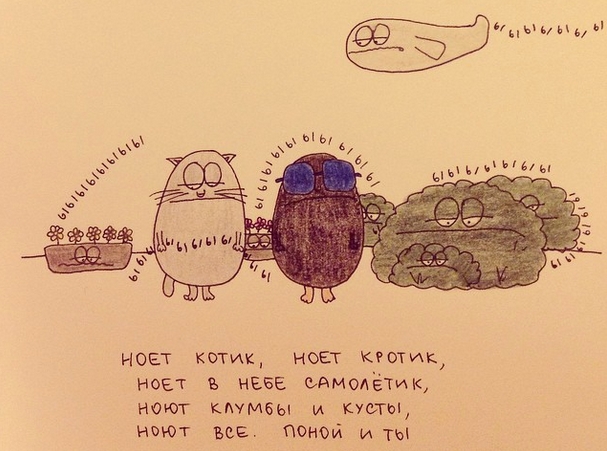 НОЕТ КОТИК, НОЕТ КРОТИК,
НОЕТ В НЕБЕ САМОЛЁТИК,
НОЮТ КЛУМБЫ И КУСТЫ,
НОЮТ ВСЕ. ПОНОЙ И ТЫ